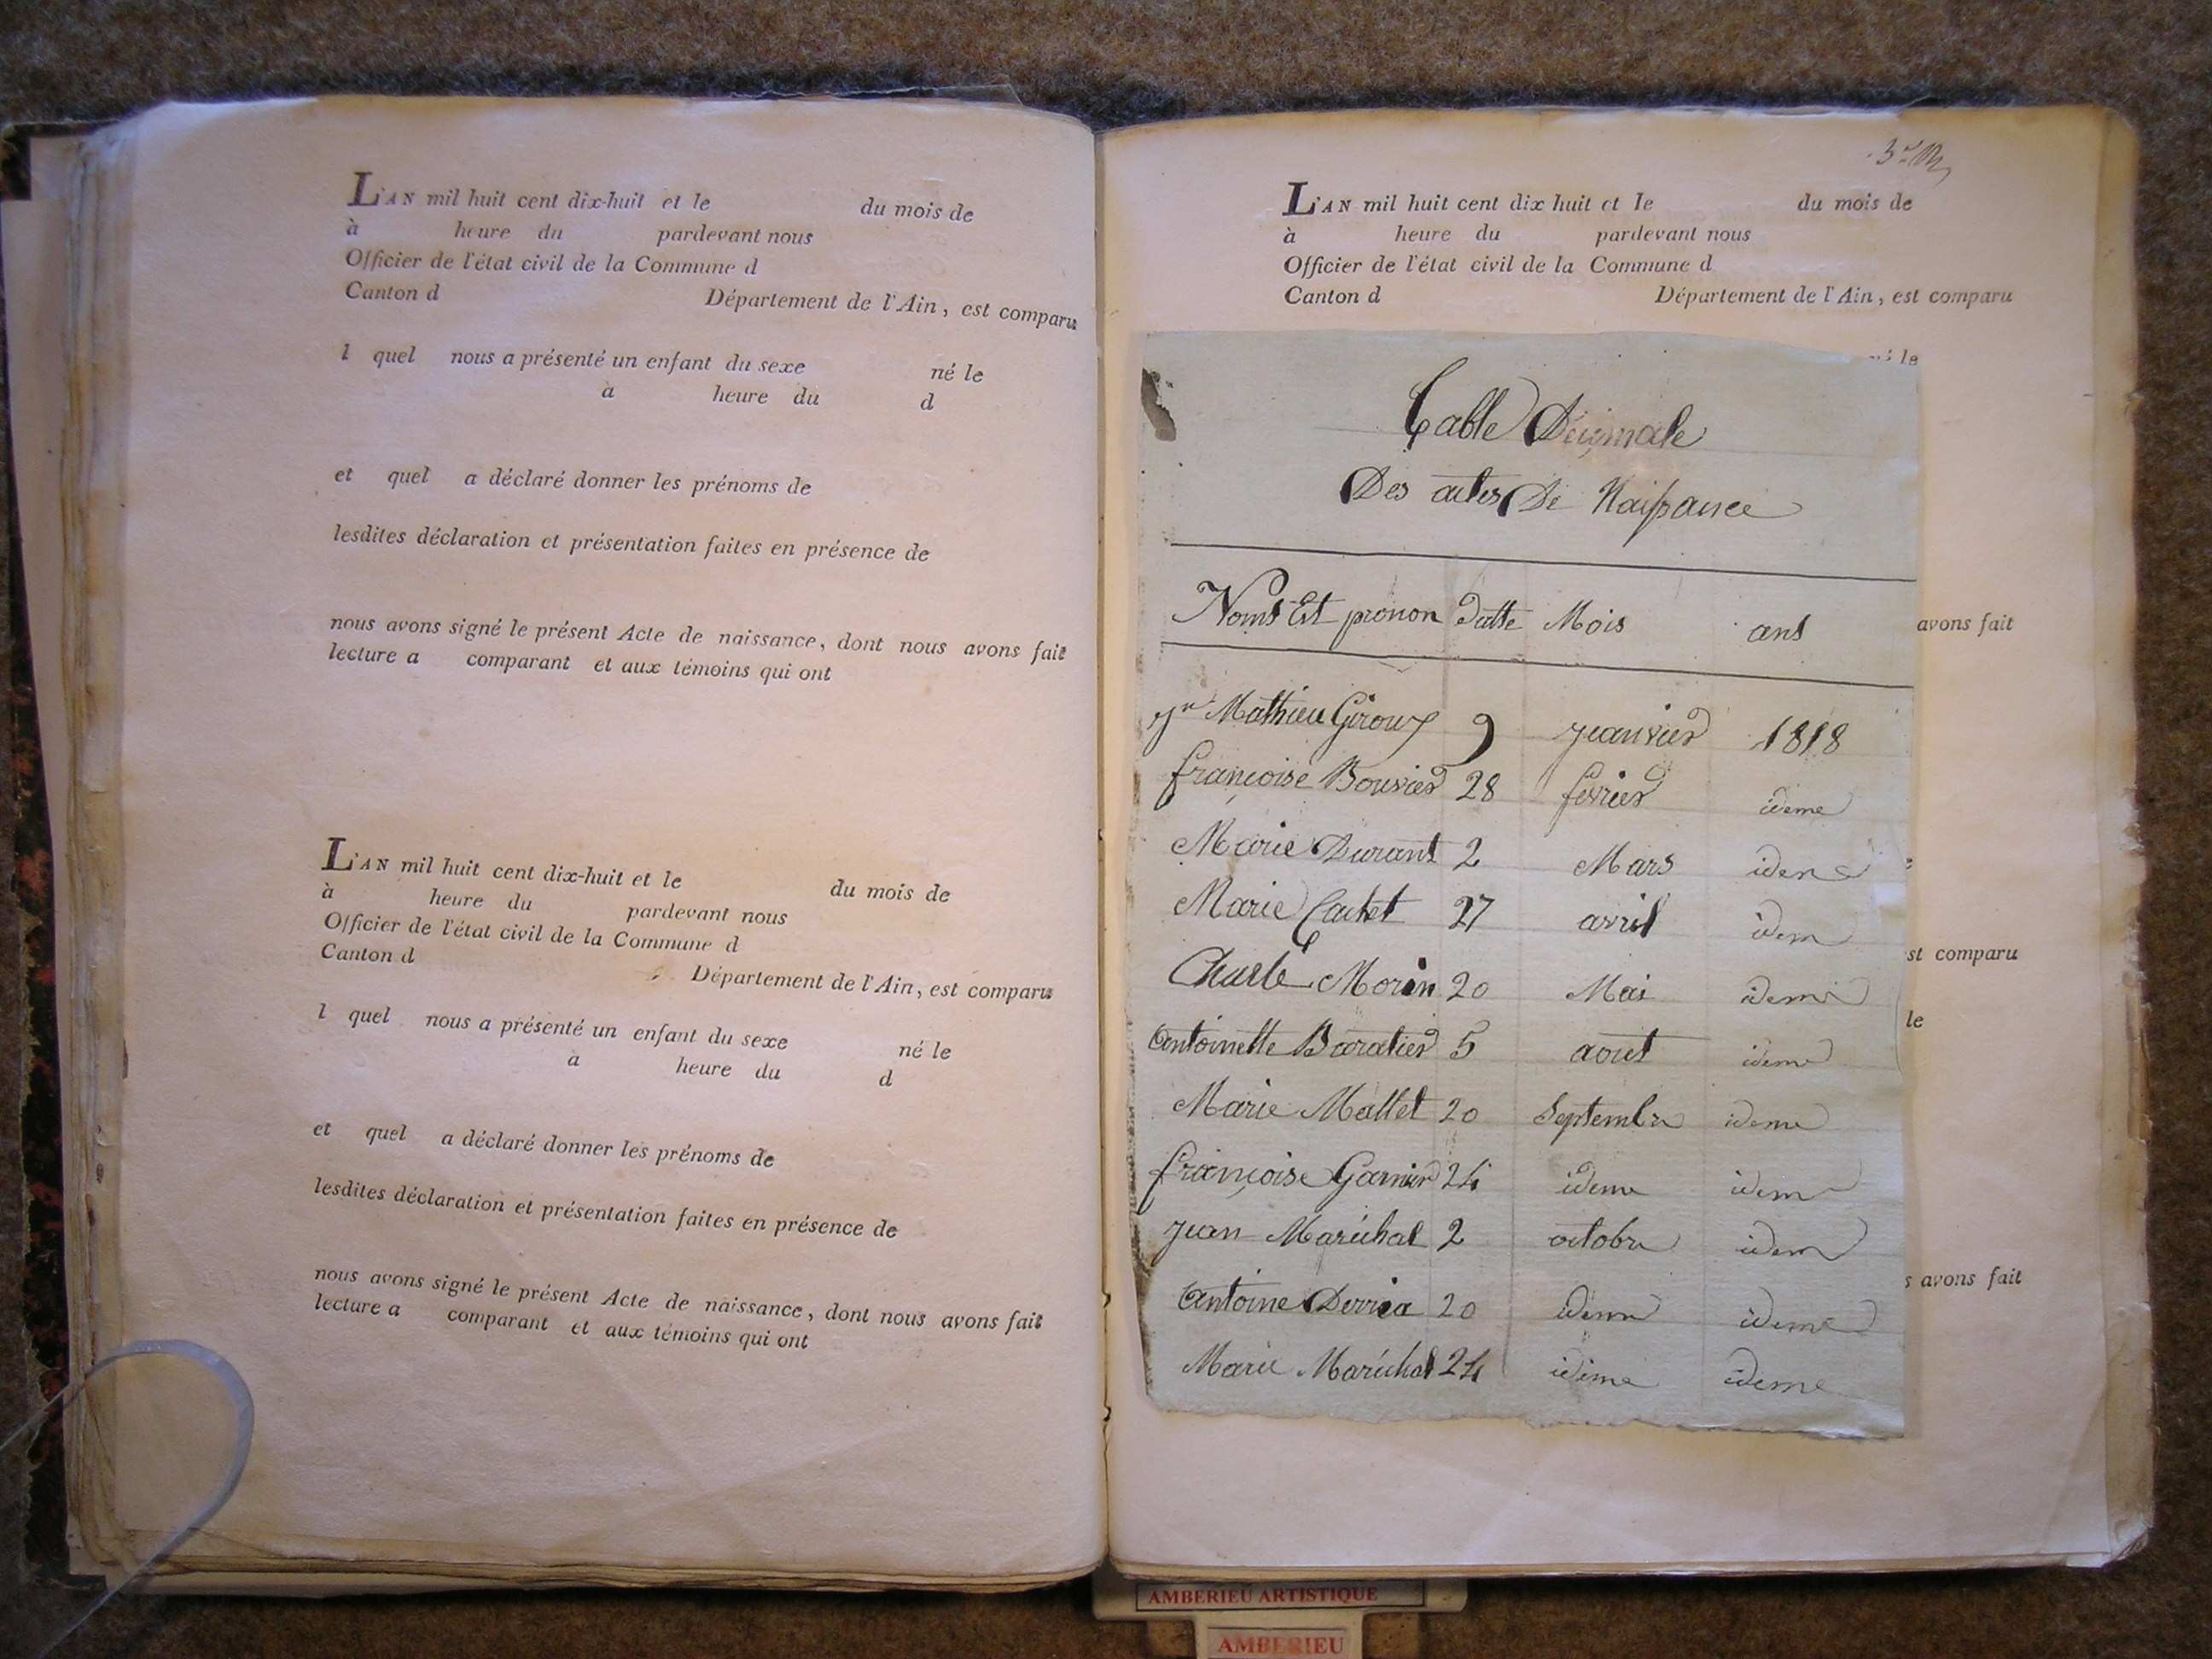 L'AN mil huit cent dix-huit et le du mois de
à heure du pardevant nous
Officier de l'état civil de la Commune d
Canton d Département de l'Ain, est comparu
l quel nous a présenté un enfant du sexe né le
à heure du d
et quel a déclaré donner les prénoms de
lesdites déclaration et présentation faites en présence de
nous avons signé le présent Acte de naissance, dont nous avons fait
lecture a comparant et aux témoins qui ont
L'AN mil huit cent dix-huit et le du mois de
à heure du pardevant nous
Officier de l'état civil de la Commune d
Canton d Département de l'Ain, est comparu
l quel nous a présenté un enfant du sexe né le
à heure du d
et quel a déclaré donner les prénoms de
lesdites déclaration et présentation faites en présence de
nous avons signé le présent Acte de naissance, dont nous avons fait
lecture a comparant et aux témoins qui ont
L'AN mil huit cent dix huit et le du mois de
à heure du pardevant nous
Officier de l'état civil de la Commune d
Canton d Département de l'Ain, est comparu
le
Table
Des actes De Naissance
Noms Et prenon Datte Mois ans
avons fait
jn Mathieu Giroux 9 jeanvier 1818
françoise Bouvier 28 fevrier ideme
Marie Durant 2 Mars idem
Marie Cachet 27 avril idem
st comparu
Charle Morin 20 Mai idem
le
Antoinette Baratier 5 aout ideme
Marie Mallet 20 Septembre ideme
françoise Garnier 24 ideme idem
jean Maréchal 2 octobre idem
s avons fait
Antoine Derria 20 idem ideme
Marie Maréchal 24 ideme ideme
AMBERIEU ARTISTIQUE
AMBERIEU